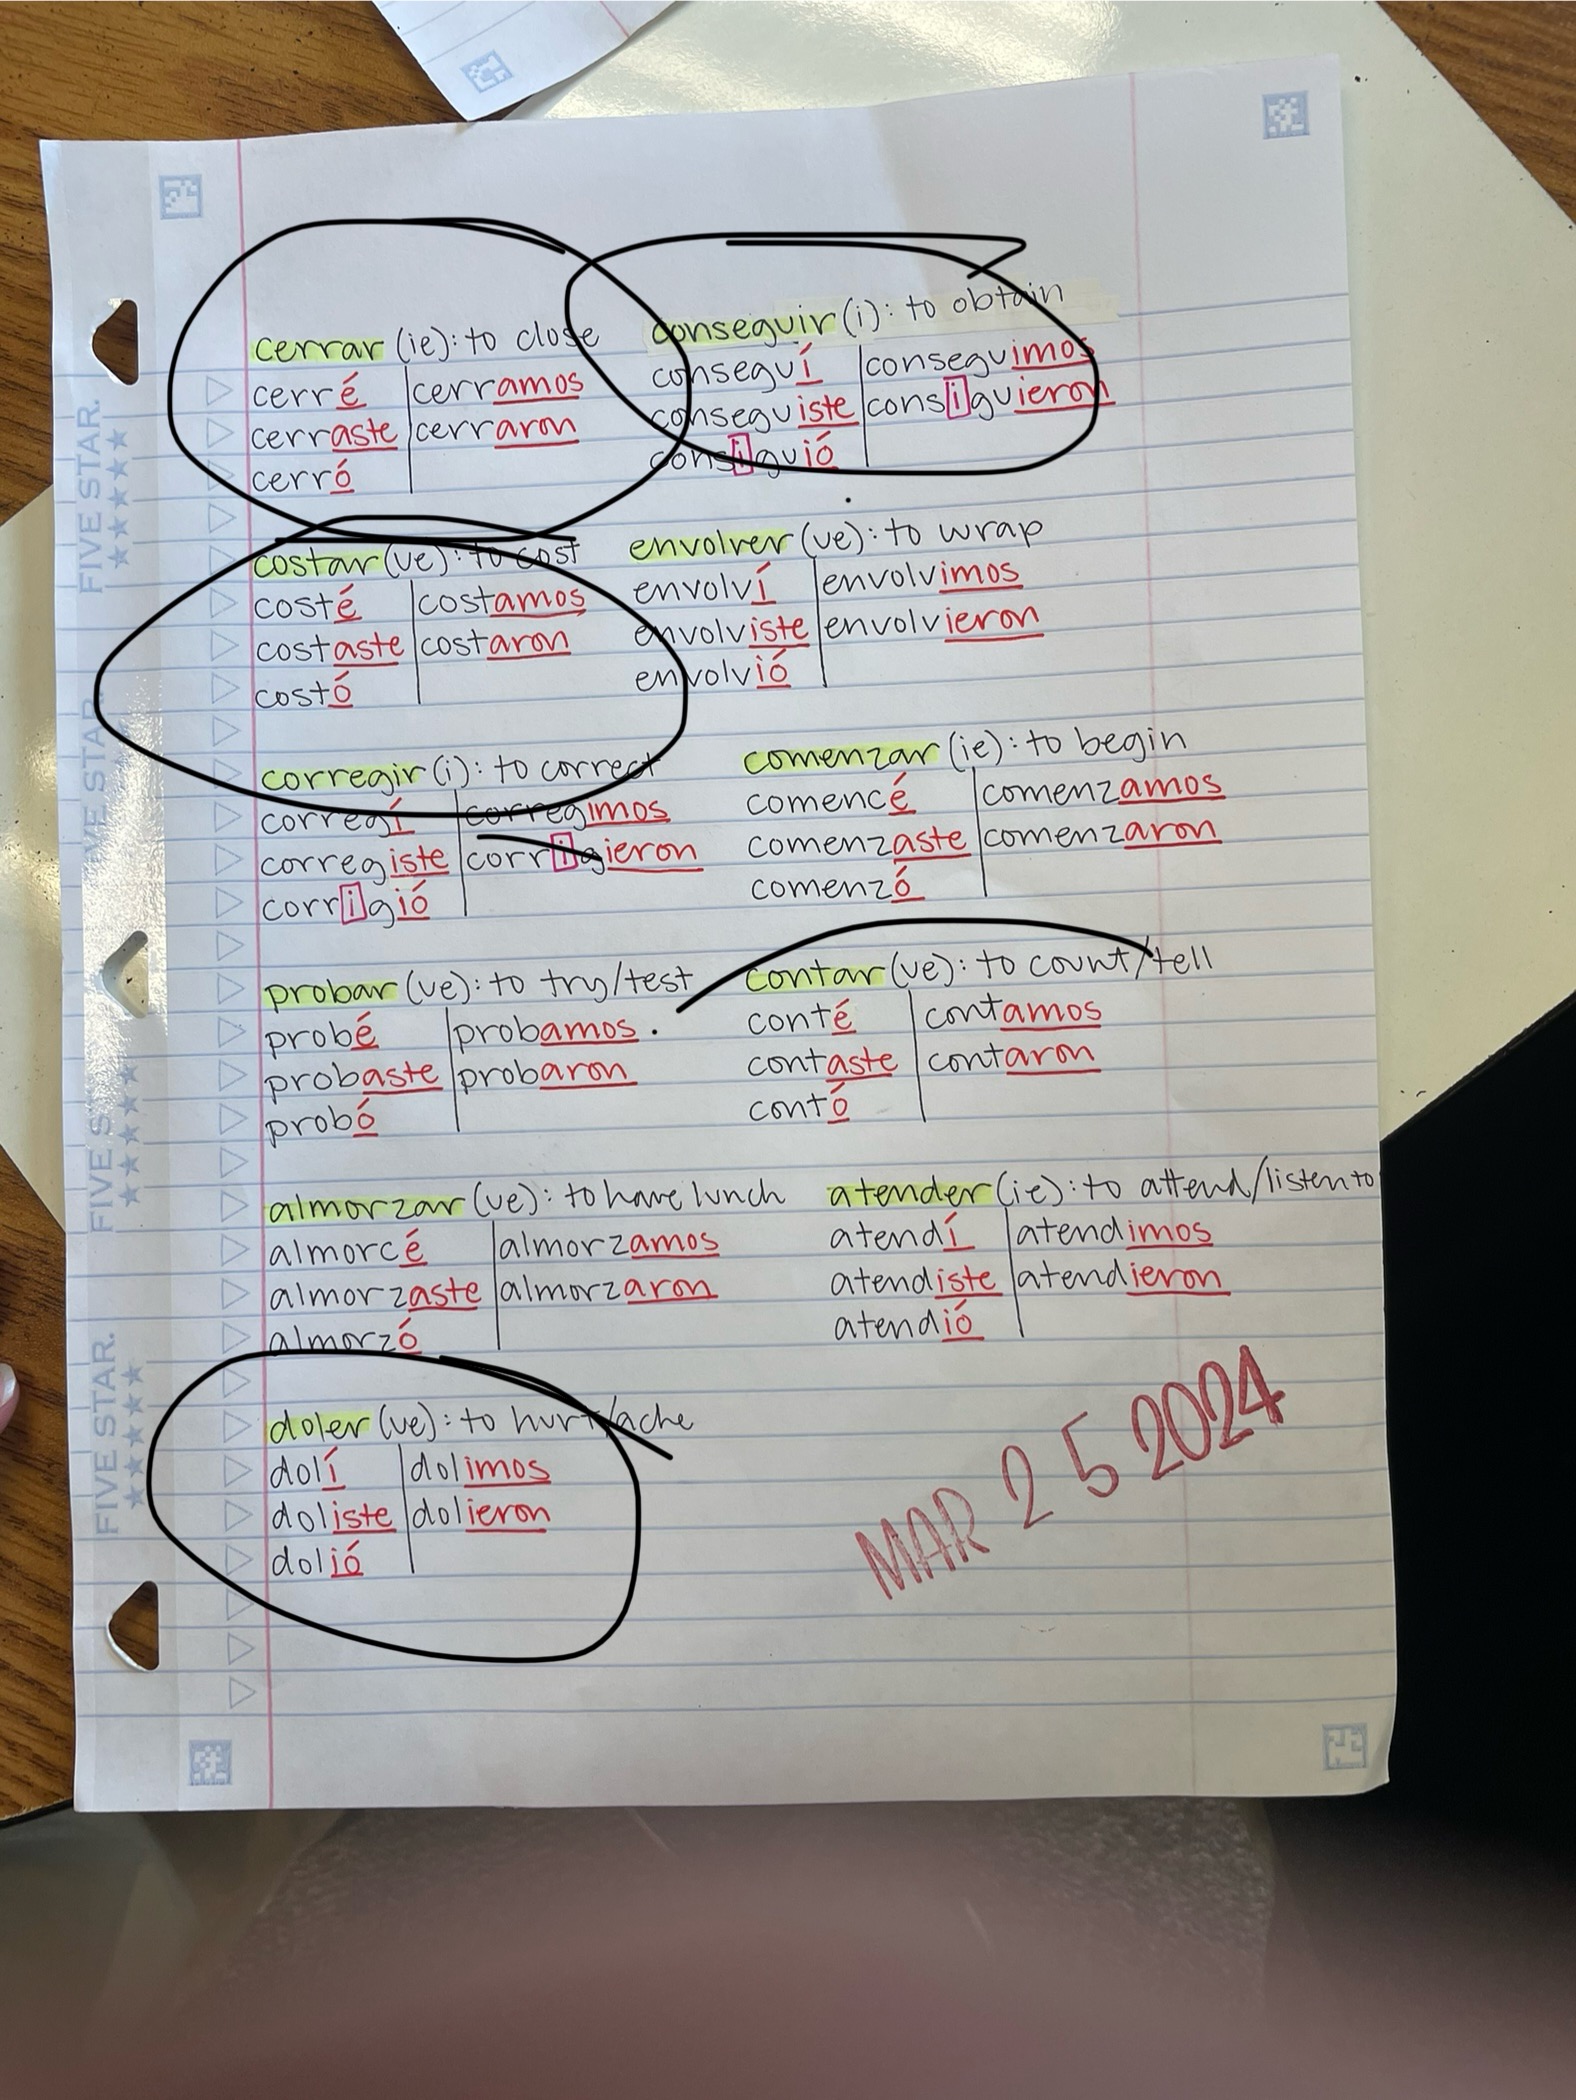 cerrar (ie): to close
cerré cerramos
cerraste cerraron
cerró
conseguir (i): to obtain
conseguí conseguimos
conseguiste consiguieron
consiguió
costar (ue): to cost
costé costamos
costaste costaron
costó
envolver (ue): to wrap
envolví envolvimos
envolviste envolvieron
envolvió
corregir (i): to correct
corregí corregimos
corregiste corrigieron
corrigió
comenzar (ie): to begin
comencé comenzamos
comenzaste comenzaron
comenzó
probar (ue): to try/test
probé probamos
probaste probaron
probó
contar (ue): to count/tell
conté contamos
contaste contaron
contó
almorzar (ue): to have lunch
almorcé almorzamos
almorzaste almorzaron
almorzó
atender (ie): to attend/listen to
atendí atendimos
atendiste atendieron
atendió
doler (ue): to hurt/ache
dolí dolimos
doliste dolieron
dolió
MAR 25 2024
FIVE STAR.
FIVE STAR.
FIVE STAR.
FIVE STAR.